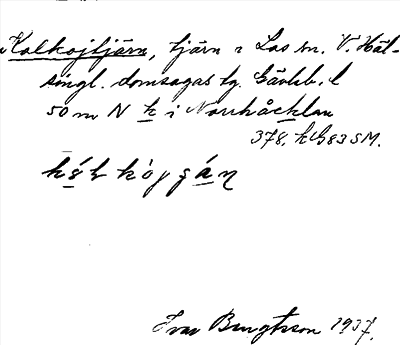 Kolkojtjärn, tjärn i Los sn. V. Häl-
singl. domsagas tg. Gävleb. l
50 m N k i Norrhåcklan
378, k G83 SM.
Ivar Bengtsson 1937.